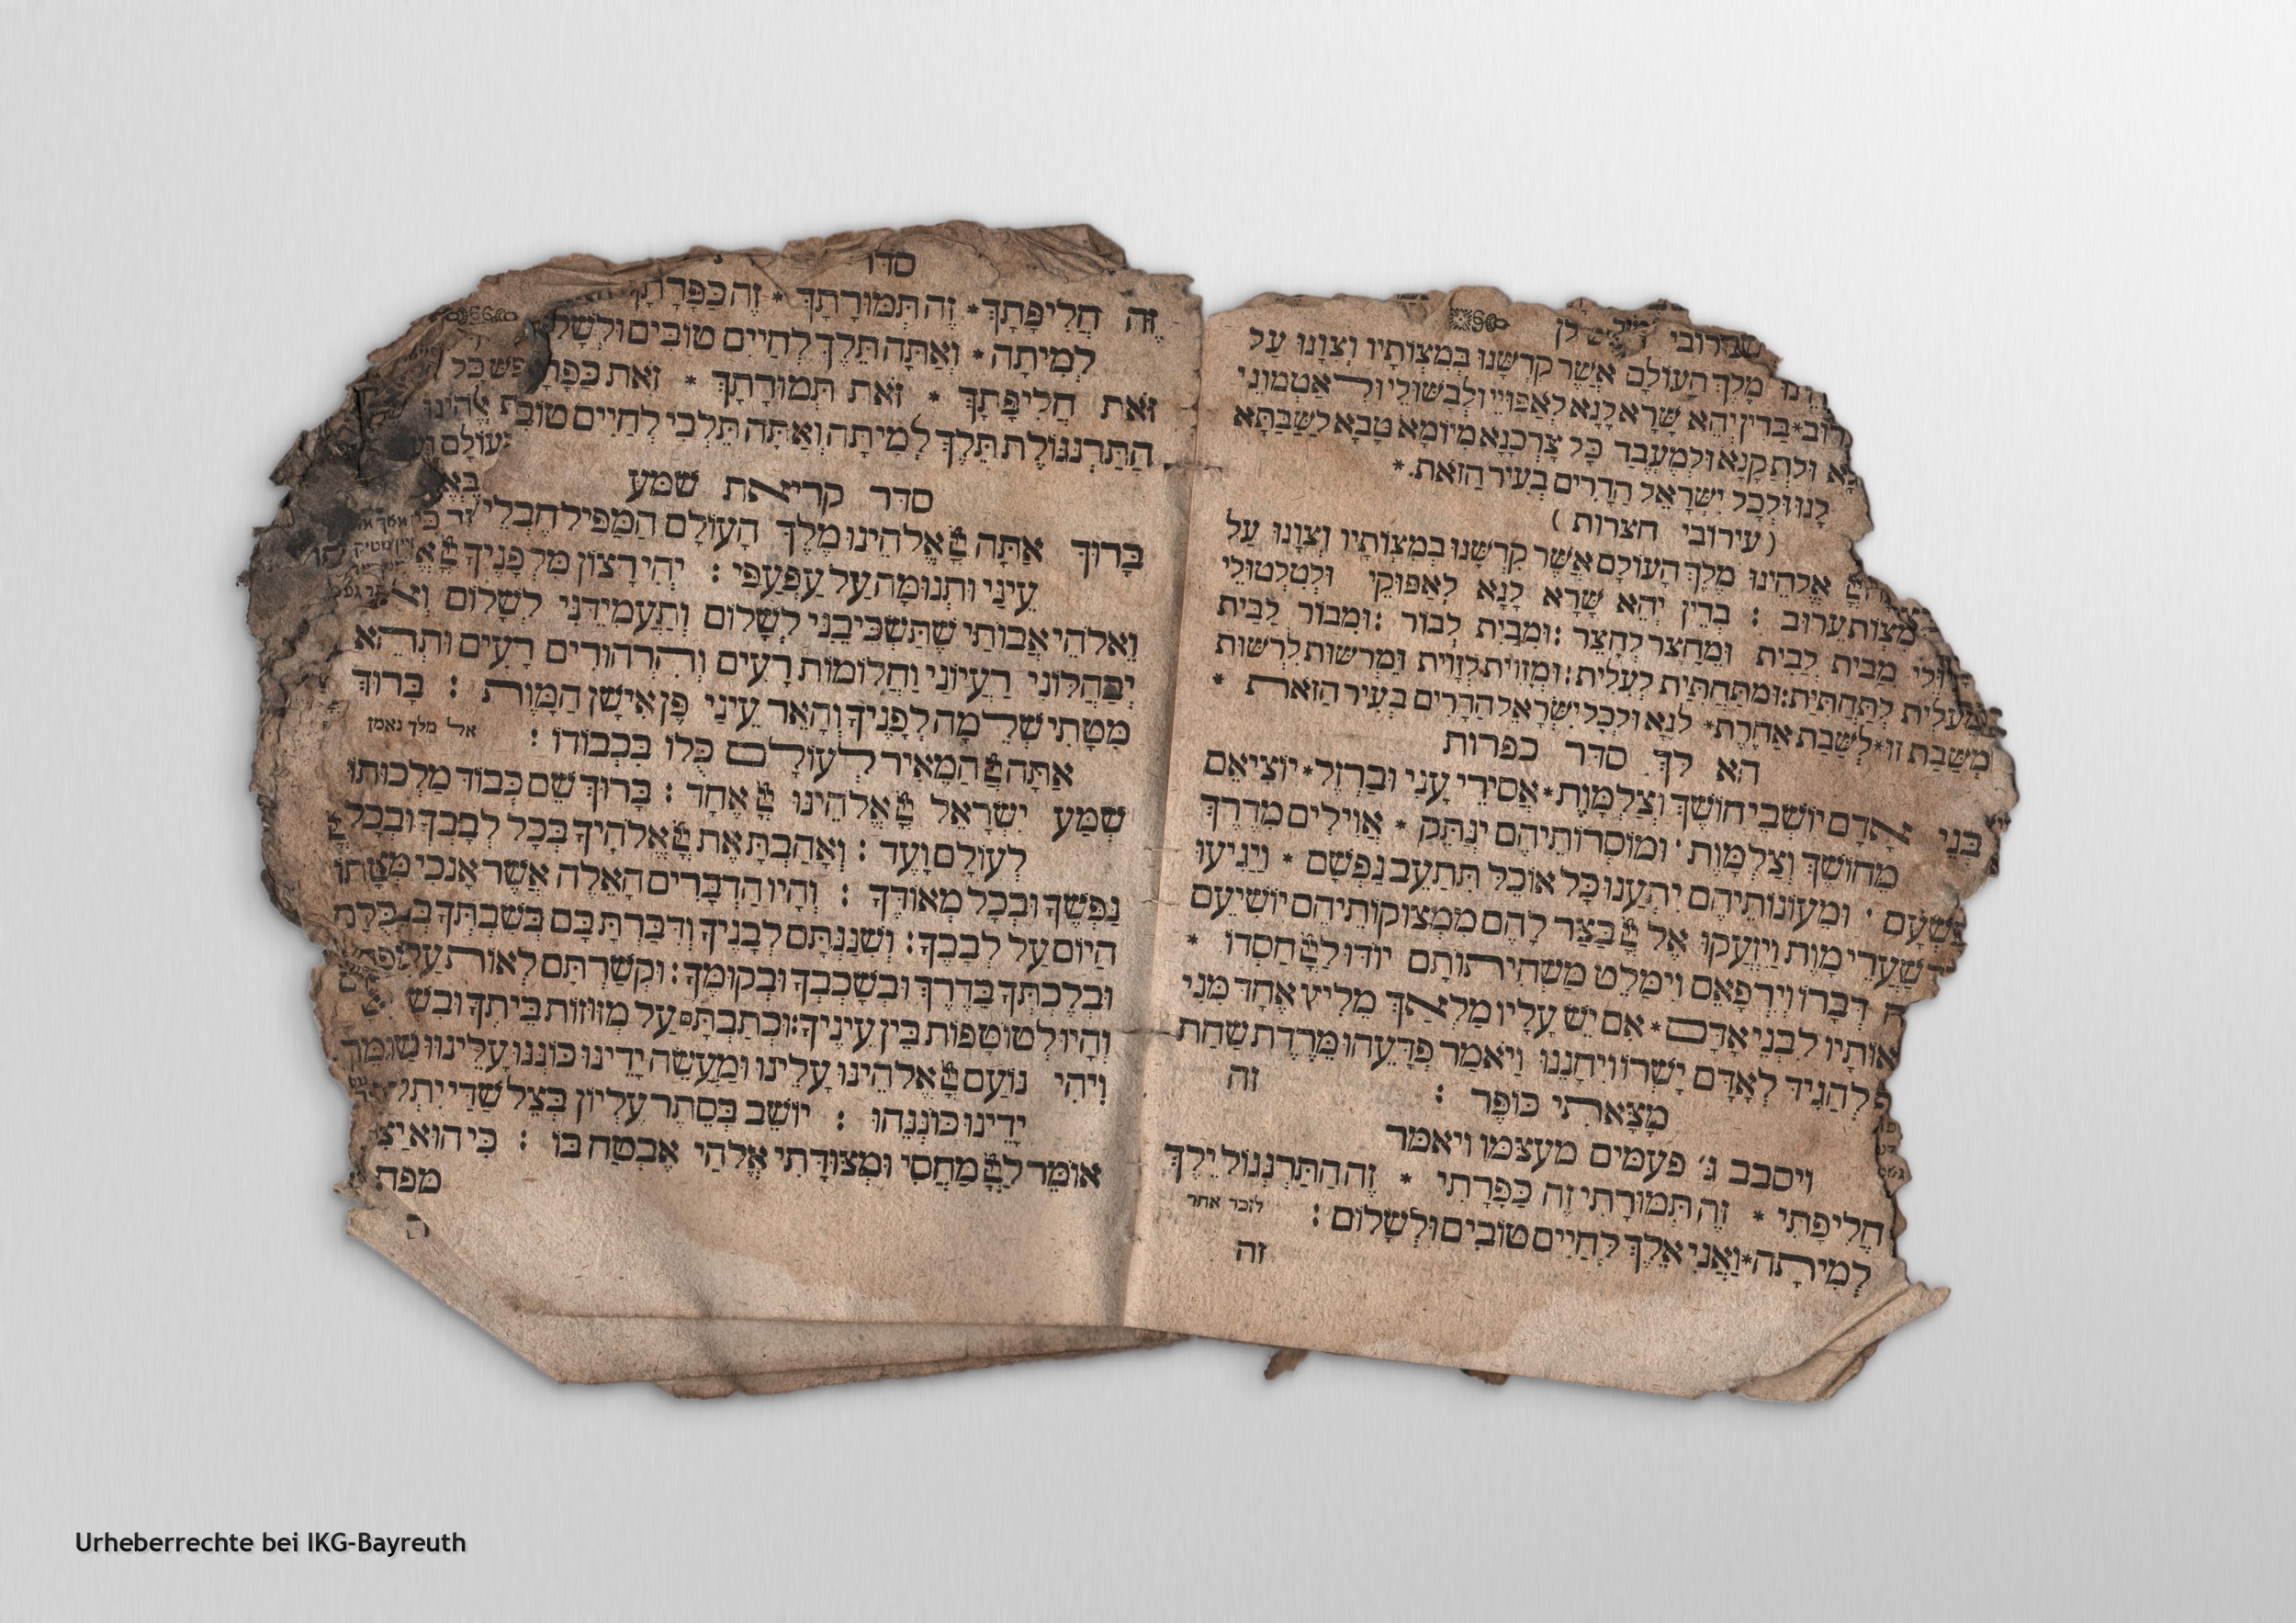 עֵרוּב * בְּדֵין יְהֵא שָׁרָא לָנָא לְאַפּוּיֵי וּלְבַשּׁוּלֵי וּלְאַטְמוּנֵי
מֶלֶךְ הָעוֹלָם אֲשֶׁר קִדְּשָׁנוּ בְּמִצְוֹתָיו וְצִוָּנוּ עַל
וּלְתַקָּנָא וּלְמֶעֱבַד כָּל צָרְכָנָא מִיּוֹמָא טָבָא לְשַׁבַּתָּא
לָנוּ וּלְכָל יִשְׂרָאֵל הַדָּרִים בְּעִיר הַזֹּאת *
(עירובי חצרות)
אֱלֹהֵינוּ מֶלֶךְ הָעוֹלָם אֲשֶׁר קִדְּשָׁנוּ בְּמִצְוֹתָיו וְצִוָּנוּ עַל
מִצְוֹת עֵרוּב : בְּדֵין יְהֵא שָׁרָא לָנָא לְאַפּוּקֵי וּלְטַלְטוּלֵי
מִבַּיִת לְבַיִת וּמֵחָצֵר לְחָצֵר : וּמִבַּיִת לְבוֹר : וּמִבּוֹר לַבַּיִת
מֵעֲלִית לְתַחְתִּית : וּמִתַּחְתִּית לַעֲלִית : וּמִזָּוִית לְזָוִית וּמֵרְשׁוּת לִרְשׁוּת
מִשַּׁבָּת זוֹ * לְשַׁבָּת אַחֶרֶת * לָנָא וּלְכָל יִשְׂרָאֵל הַדָּרִים בְּעִיר הַזֹּאת *
הא לך סדר כפרות
בְּנֵי אָדָם יוֹשְׁבֵי חוֹשֶׁךְ וְצַלְמָוֶת * אֲסִירֵי עֳנִי וּבַרְזֶל * יוֹצִיאֵם
מֵחוֹשֶׁךְ וְצַלְמָוֶת · וּמוֹסְרוֹתֵיהֶם יְנַתֵּק * אֱוִילִים מִדֶּרֶךְ
פִּשְׁעָם · וּמֵעֲוֹנוֹתֵיהֶם יִתְעַנּוּ כָּל אוֹכֶל תְּתַעֵב נַפְשָׁם * וַיַּגִּיעוּ
שַׁעֲרֵי מָוֶת וַיִּזְעֲקוּ אֶל יְיָ בַּצַּר לָהֶם מִמְּצוּקוֹתֵיהֶם יוֹשִׁיעֵם
דְּבָרוֹ וְיִרְפָּאֵם וִימַלֵּט מִשְּׁחִיתוֹתָם יוֹדוּ לַיְיָ חַסְדוֹ *
לִבְנֵי אָדָם * אִם יֵשׁ עָלָיו מַלְאָךְ מֵלִיץ אֶחָד מִנִּי
לְהַגִּיד לְאָדָם יָשְׁרוֹ וִיחָנֵנוּ וַיֹּאמֶר פְּדָעֵהוּ מֵרֶדֶת שַׁחַת
מָצָאתִי כּוֹפֶר : זה
ויסבב ג׳ פעמים מעצמו ויאמר
חֲלִיפָתִי * זֶה תְּמוּרָתִי זֶה כַּפָּרָתִי * זֶה הַתַּרְנְגוֹל יֵלֵךְ
לְמִיתָה * וַאֲנִי אֵלֵךְ לְחַיִּים טוֹבִים וּלְשָׁלוֹם : לזכר אחר
זה
סדר
זֶה חֲלִיפָתְךָ * זֶה תְּמוּרָתְךָ * זֶה כַּפָּרָתְךָ
לְמִיתָה * וְאַתָּה תֵּלֵךְ לְחַיִּים טוֹבִים
זֹאת חֲלִיפָתְךָ * זֹאת תְּמוּרָתְךָ * זֹאת
הַתַּרְנְגוֹלֶת תֵּלֵךְ לְמִיתָה וְאַתָּה תֵּלְכִי לְחַיִּים
סדר קריאת שמע
בָּרוּךְ אַתָּה יְיָ אֱלֹהֵינוּ מֶלֶךְ הָעוֹלָם הַמַּפִּיל חֶבְלֵי
עֵינַי וּתְנוּמָה עַל עַפְעַפָּי : יְהִי רָצוֹן מִלְּפָנֶיךָ יְיָ
וֵאלֹהֵי אֲבוֹתַי שֶׁתַּשְׁכִּיבֵנִי לְשָׁלוֹם וְתַעֲמִידֵנִי לְשָׁלוֹם
יְבַהֲלוּנִי רַעְיוֹנַי וַחֲלוֹמוֹת רָעִים וְהִרְהוּרִים רָעִים וּתְהֵא
מִטָּתִי שְׁלֵמָה לְפָנֶיךָ וְהָאֵר עֵינַי פֶּן אִישַׁן הַמָּוֶת : בָּרוּךְ
אַתָּה יְיָ הַמֵּאִיר לְעוֹלָם כֻּלּוֹ בִּכְבוֹדוֹ : אל מלך נאמן
שְׁמַע יִשְׂרָאֵל יְיָ אֱלֹהֵינוּ יְיָ אֶחָד : בָּרוּךְ שֵׁם כְּבוֹד מַלְכוּתוֹ
לְעוֹלָם וָעֶד : וְאָהַבְתָּ אֵת יְיָ אֱלֹהֶיךָ בְּכָל לְבָבְךָ וּבְכָל
נַפְשְׁךָ וּבְכָל מְאוֹדֶךָ : וְהָיוּ הַדְּבָרִים הָאֵלֶּה אֲשֶׁר אָנֹכִי
הַיּוֹם עַל לְבָבֶךָ : וְשִׁנַּנְתָּם לְבָנֶיךָ וְדִבַּרְתָּ בָּם בְּשִׁבְתְּךָ
וּבְלֶכְתְּךָ בַדֶּרֶךְ וּבְשָׁכְבְּךָ וּבְקוּמֶךָ : וּקְשַׁרְתָּם לְאוֹת עַל
וְהָיוּ לְטוֹטָפוֹת בֵּין עֵינֶיךָ : וּכְתַבְתָּם עַל מְזוּזוֹת בֵּיתֶךָ
וִיהִי נוֹעַם יְיָ אֱלֹהֵינוּ עָלֵינוּ וּמַעֲשֵׂה יָדֵינוּ כּוֹנְנָה עָלֵינוּ
יָדֵינוּ כּוֹנְנֵהוּ : יוֹשֵׁב בְּסֵתֶר עֶלְיוֹן בְּצֵל שַׁדַּי
אוֹמֵר לַיְיָ מַחְסִי וּמְצוּדָתִי אֱלֹהַי אֶבְטַח בּוֹ : כִּי הוּא
מפח
Urheberrechte bei IKG-Bayreuth